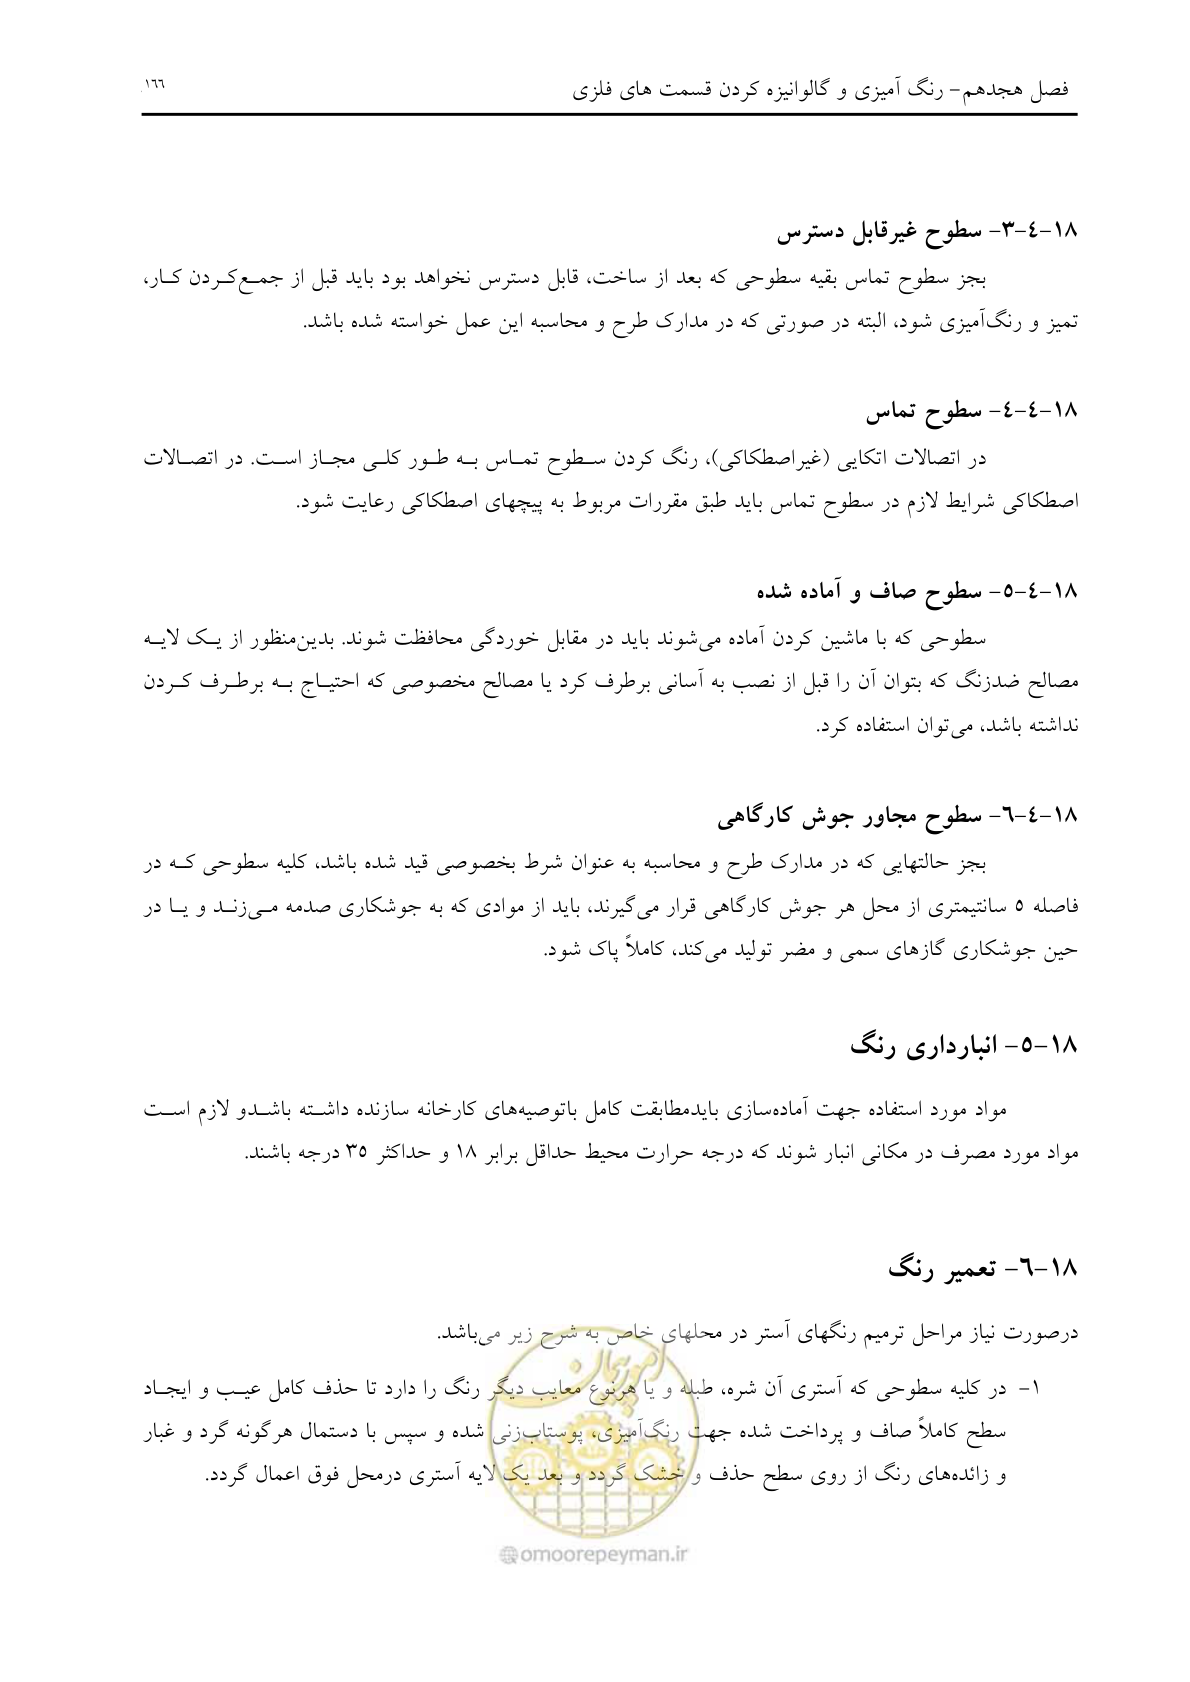 فصل هجدهم- رنگ آمیزی و گالوانیزه کردن قسمت های فلزی
١٦٦
١٨-٤-٣- سطوح غیرقابل دسترس
بجز سطوح تماس بقیه سطوحی که بعد از ساخت، قابل دسترس نخواهد بود باید قبل از جمع‌کردن کار،
تمیز و رنگ‌آمیزی شود، البته در صورتی که در مدارک طرح و محاسبه این عمل خواسته شده باشد.
١٨-٤-٤- سطوح تماس
در اتصالات اتکایی (غیراصطکاکی)، رنگ کردن سطوح تماس به طور کلی مجاز است. در اتصالات
اصطکاکی شرایط لازم در سطوح تماس باید طبق مقررات مربوط به پیچهای اصطکاکی رعایت شود.
١٨-٤-٥- سطوح صاف و آماده شده
سطوحی که با ماشین کردن آماده می‌شوند باید در مقابل خوردگی محافظت شوند. بدین‌منظور از یک لایه
مصالح ضدزنگ که بتوان آن را قبل از نصب به آسانی برطرف کرد یا مصالح مخصوصی که احتیاج به برطرف کردن
نداشته باشد، می‌توان استفاده کرد.
١٨-٤-٦- سطوح مجاور جوش کارگاهی
بجز حالتهایی که در مدارک طرح و محاسبه به عنوان شرط بخصوصی قید شده باشد، کلیه سطوحی که در
فاصله ٥ سانتیمتری از محل هر جوش کارگاهی قرار می‌گیرند، باید از موادی که به جوشکاری صدمه می‌زند و یا در
حین جوشکاری گازهای سمی و مضر تولید می‌کند، کاملاً پاک شود.
١٨-٥- انبارداری رنگ
مواد مورد استفاده جهت آماده‌سازی بایدمطابقت کامل باتوصیه‌های کارخانه سازنده داشته باشدو لازم است
مواد مورد مصرف در مکانی انبار شوند که درجه حرارت محیط حداقل برابر ١٨ و حداکثر ٣٥ درجه باشند.
١٨-٦- تعمیر رنگ
درصورت نیاز مراحل ترمیم رنگهای آستر در محلهای خاص به شرح زیر می‌باشد.
١- در کلیه سطوحی که آستری آن شره، طبله و یا هرنوع معایب دیگر رنگ را دارد تا حذف کامل عیب و ایجاد
سطح کاملاً صاف و پرداخت شده جهت رنگ‌آمیزی، پوستاب‌زنی شده و سپس با دستمال هرگونه گرد و غبار
و زائده‌های رنگ از روی سطح حذف و خشک گردد و بعد یک لایه آستری درمحل فوق اعمال گردد.
امور پیمان
@omoorepeyman.ir